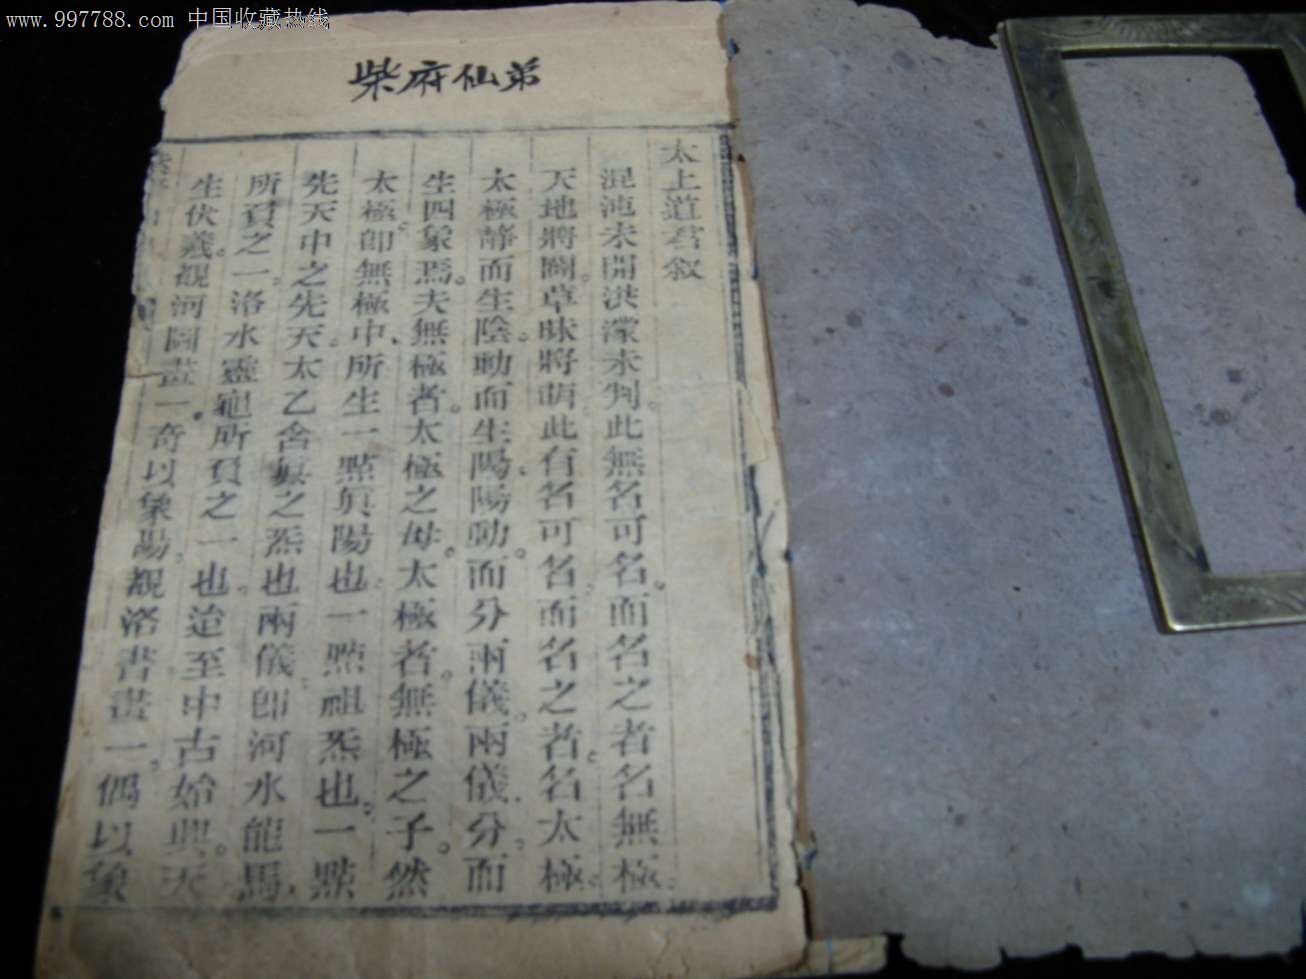 www.997788.com 中国收藏热线
柴府仙弟
太上道君敘
混沌未開洪濛未判此無名可名而名之者名無極
天地將闢草昧將萌此有名可名而名之者名太極
太極靜而生陰動而生陽陽動而分兩儀兩儀分而
生四象焉夫無極者太極之母太極者無極之子然
太極卽無極中所生一點眞陽也一點祖炁也一點
先天中之先天太乙含眞之炁也兩儀卽河水龍馬
所負之一洛水靈龜所負之一也迨至中古始興天
生伏羲觀河圖畫一奇以象陽觀洛書畫一偶以象